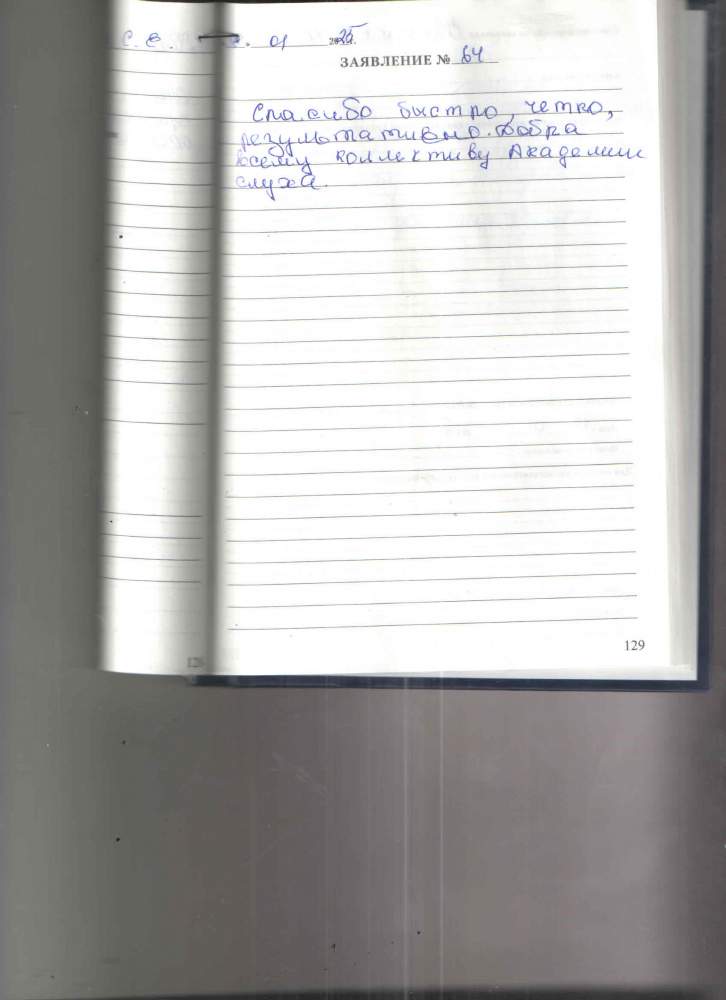 С. Е. 01 2025г.
ЗАЯВЛЕНИЕ № 64
Спасибо быстро, четко,
результативно. Добра
всему коллективу Академии
слуха.
129